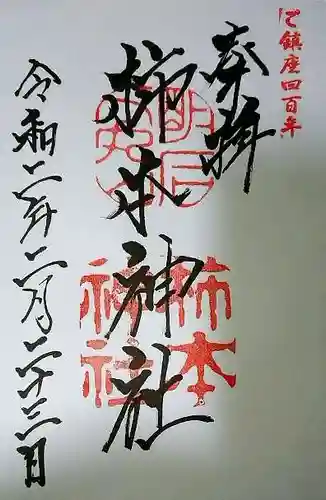 ご鎮座四百年
奉拝
柿本神社
明石
人丸山
柿本
神社
令和二年二月二十三日